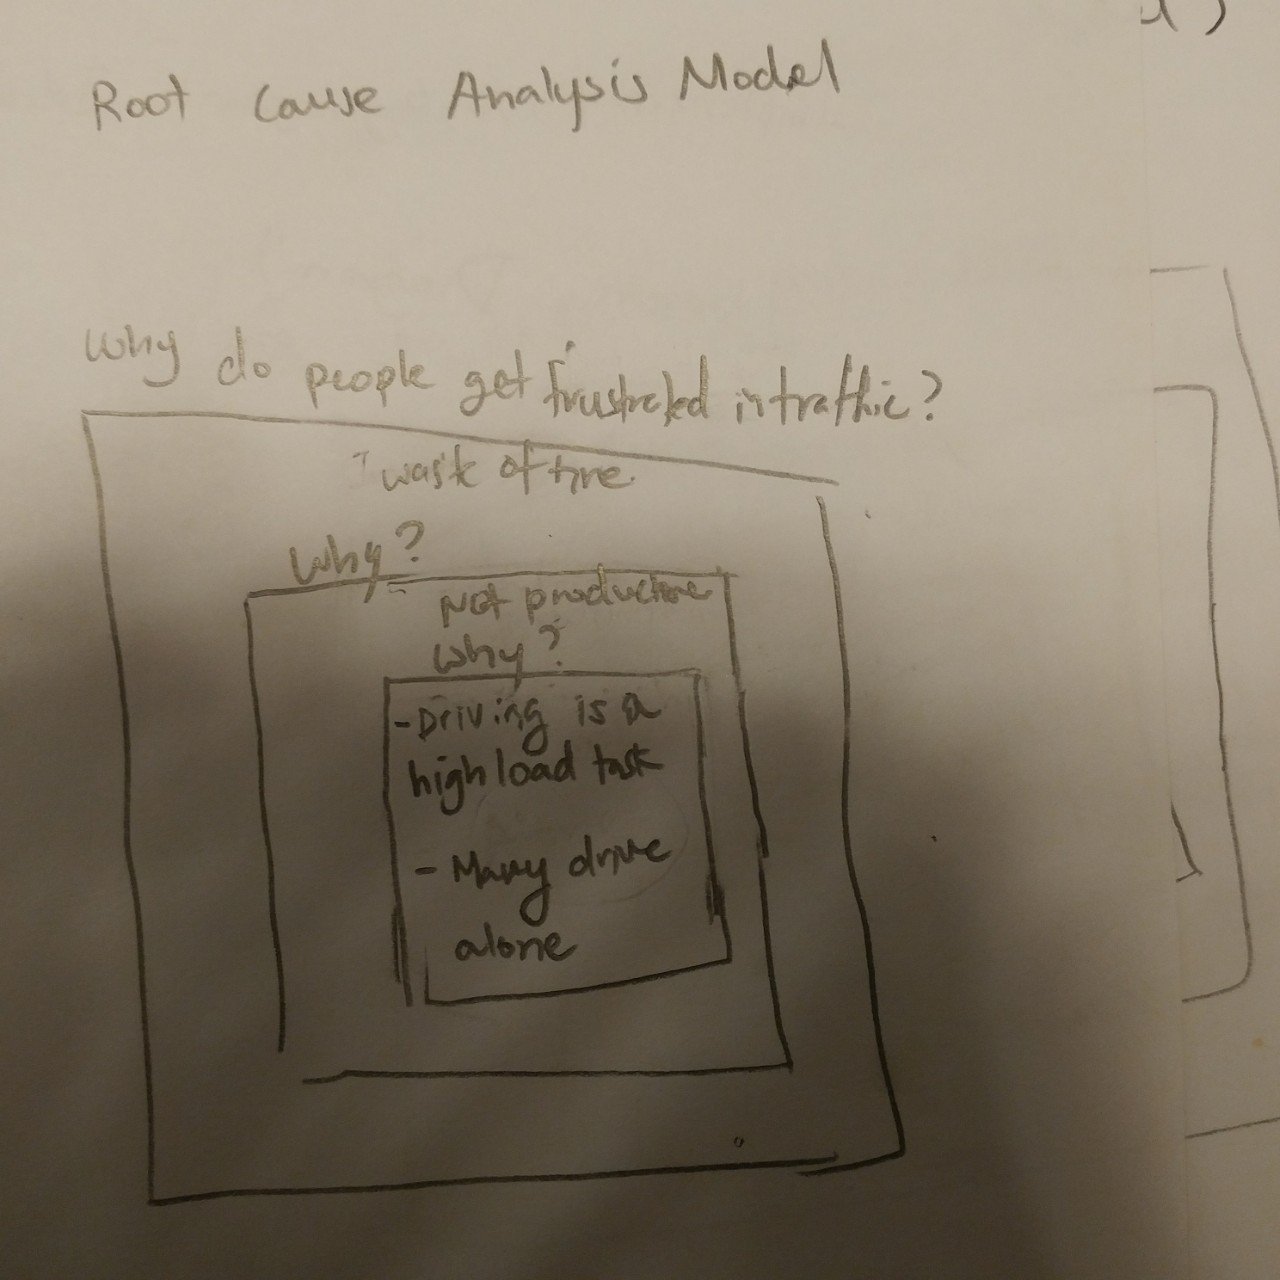 Root Cause Analysis Model
Why do people get frustrated in traffic?
waste of time
Why?
Not productive
Why?
- Driving is a
high load task
- Many drive
alone